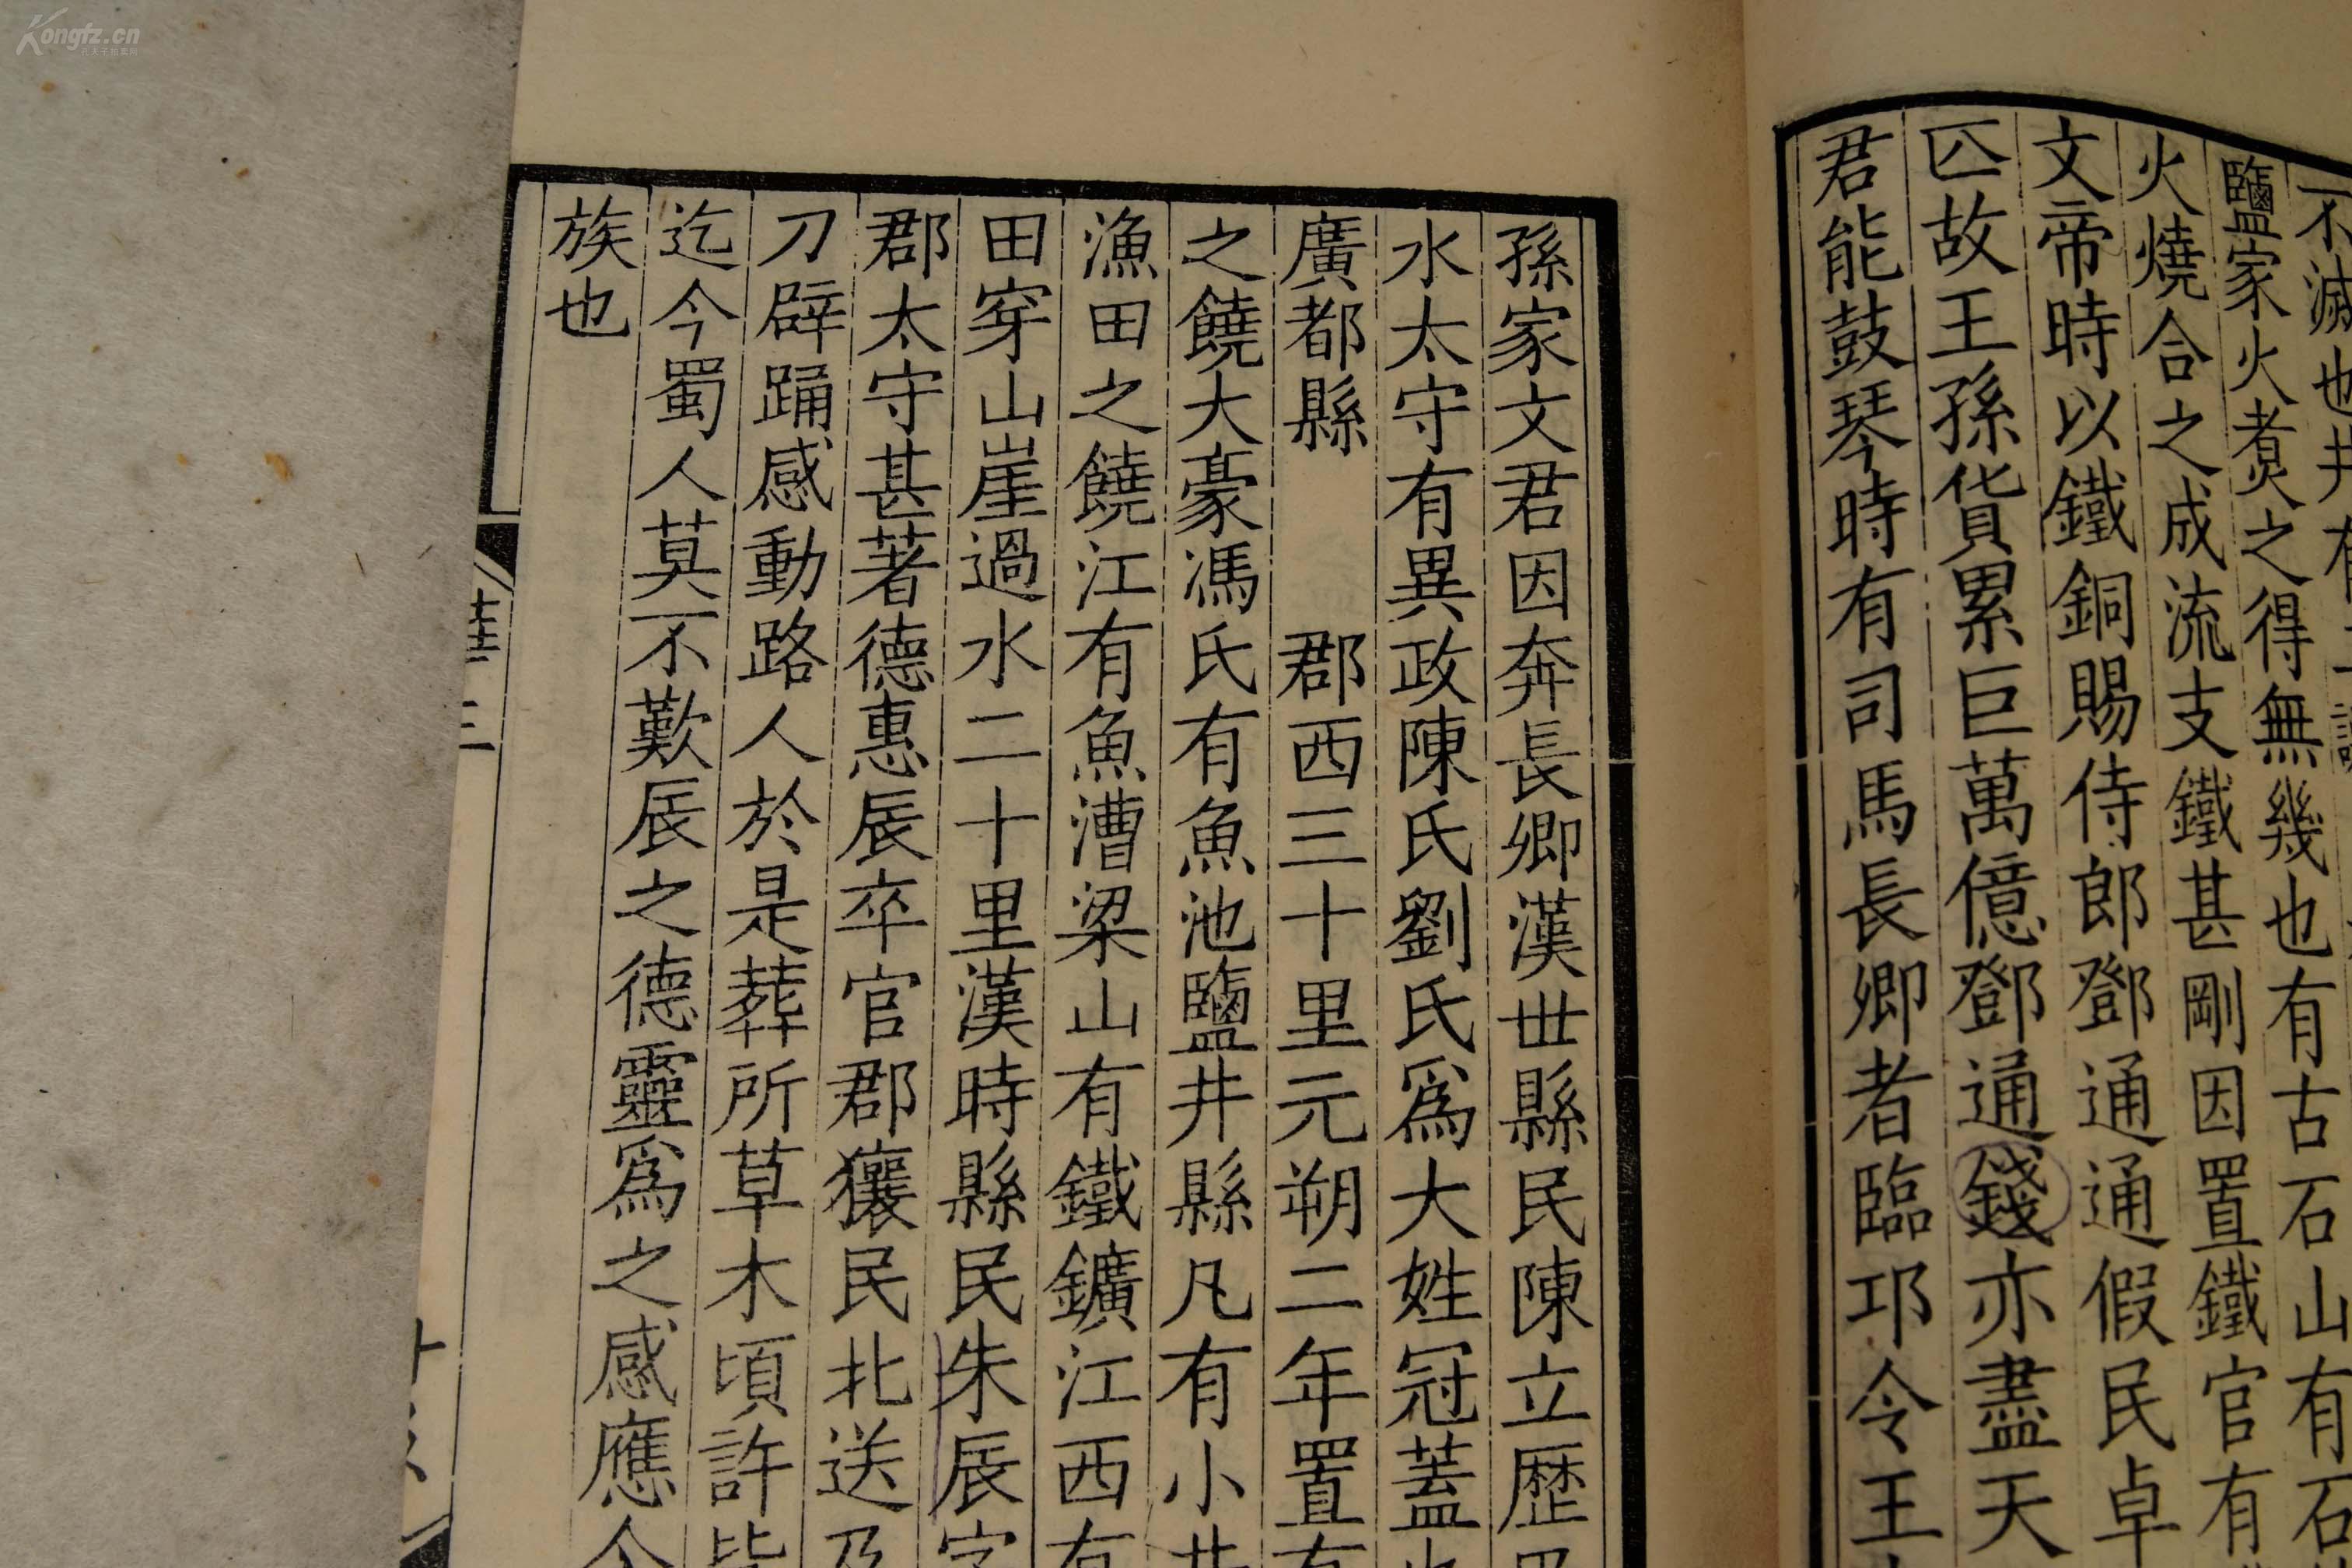 Kongfz.cn
不滅也井有
鹽家火煮之得無幾也有古石山有石
火燒合之成流支鐵甚剛因置鐵官有
文帝時以鐵銅賜侍郎鄧通通假民卓
匹故王孫貨累巨萬億鄧通錢亦盡天
君能鼓琴時有司馬長卿者臨邛令王
孫家文君因奔長卿漢世縣民陳立歷
水太守有異政陳氏劉氏爲大姓冠蓋
廣都縣 郡西三十里元朔二年置有
之饒大豪馮氏有魚池鹽井縣凡有小井
漁田之饒江有魚漕梁山有鐵鑛江西有
田穿山崖過水二十里漢時縣民朱辰字
郡太守甚著德惠辰卒官郡獽民北送乃
刀辟踊感動路人於是葬所草木頃許皆
迄今蜀人莫不歎辰之德靈爲之感應今
族也